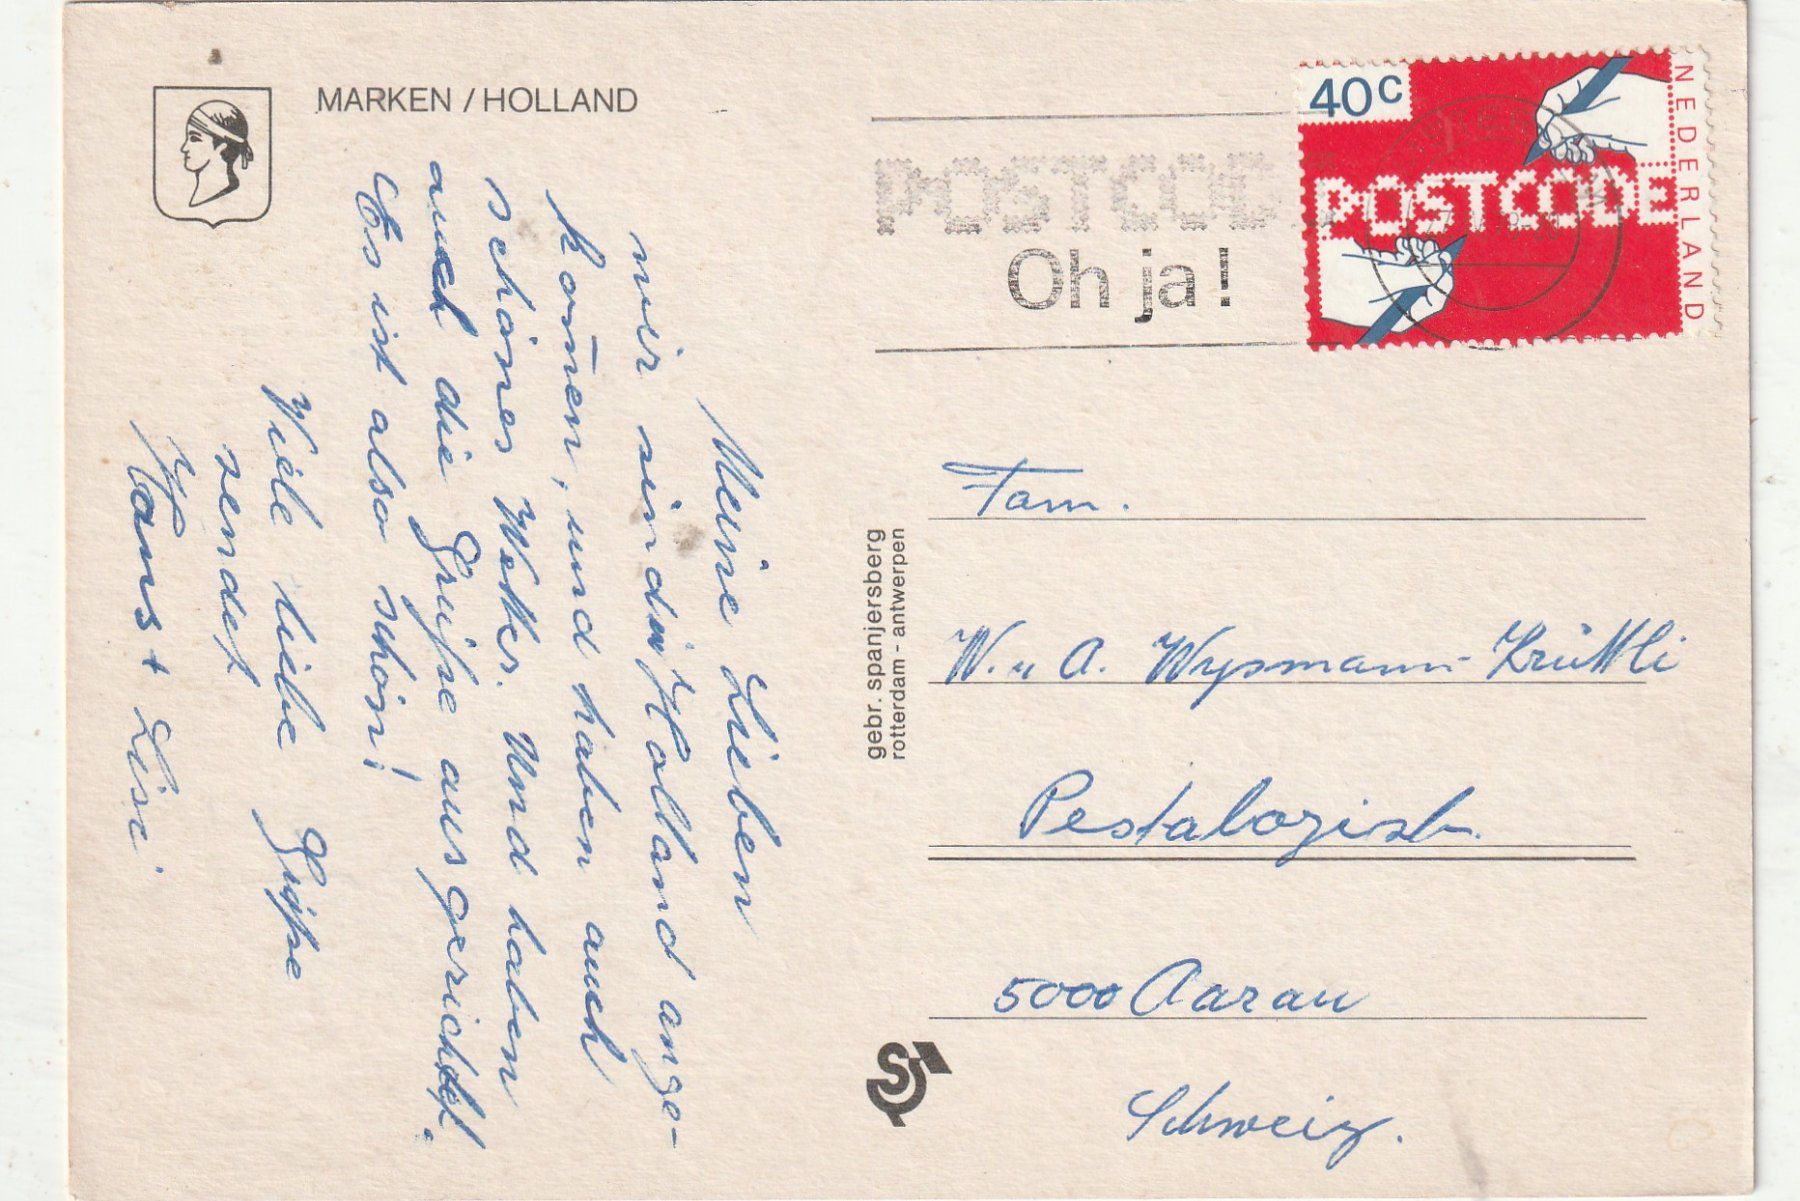 MARKEN / HOLLAND
Meine Lieben
wir sind in Holland ange-
kom̅en, und haben auch
schönes Wetter. Und haben
auch die Grüße ausgerichtet.
Es ist also schön!
Viele liebe Grüße
sendet
Hans + Lisi.
gebr. spanjersberg
rotterdam - antwerpen
POSTCODE
Oh ja!
40c
POSTCODE
NEDERLAND
Fam.
W. u A. Wysmann-Krüttli
Pestalozzistr.
5000 Aarau
Schweiz.
S